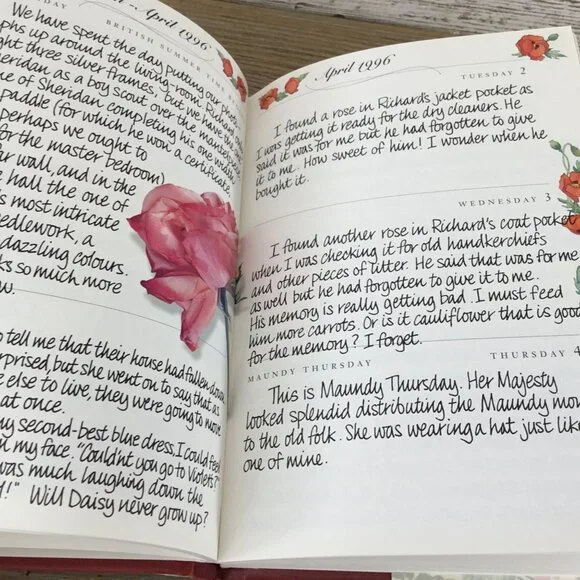 DAY
– April 1996
BRITISH SUMMER TI
We have spent the day putting our
phs up around the living-room. Richard
ght three silver frames, but we have the
eridan as a boy scout over the mantelpiece,
ne of Sheridan completing his one
paddle (for which he won a certificate
perhaps we ought to
for the master bedroom)
ar wall, and in the
e hall the one of
's most intricate
edlework, a
dazzling colours.
ks so much more
w.
o tell me that their house had fallen down
rprised, but she went on to say that as
e else to live, they were going to move
at once.
my second-best blue dress. I could feel
n my face. "Couldn't you go to Violet's?"
was much laughing down the
d!" Will Daisy never grow up?
April 1996
TUESDAY 2
I found a rose in Richard's jacket pocket as
I was getting it ready for the dry cleaners. He
said it was for me but he had forgotten to give
it to me. How sweet of him! I wonder when he
bought it.
WEDNESDAY 3
I found another rose in Richard's coat pocket
when I was checking it for old handkerchiefs
and other pieces of litter. He said that was for me
as well but he had forgotten to give it to me.
His memory is really getting bad. I must feed
him more carrots. Or is it cauliflower that is good
for the memory? I forget.
MAUNDY THURSDAY
THURSDAY 4
This is Maundy Thursday. Her Majesty
looked splendid distributing the Maundy mon
to the old folk. She was wearing a hat just like
one of mine.